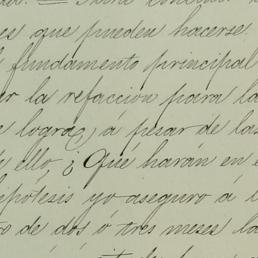 es que pueden hacerse.
fundamento principal
or la refaccion para la
logra, á pesar de las
ello ¿Qué harán en e
ipotesis yo aseguro á l
to de dos ó tres meses la